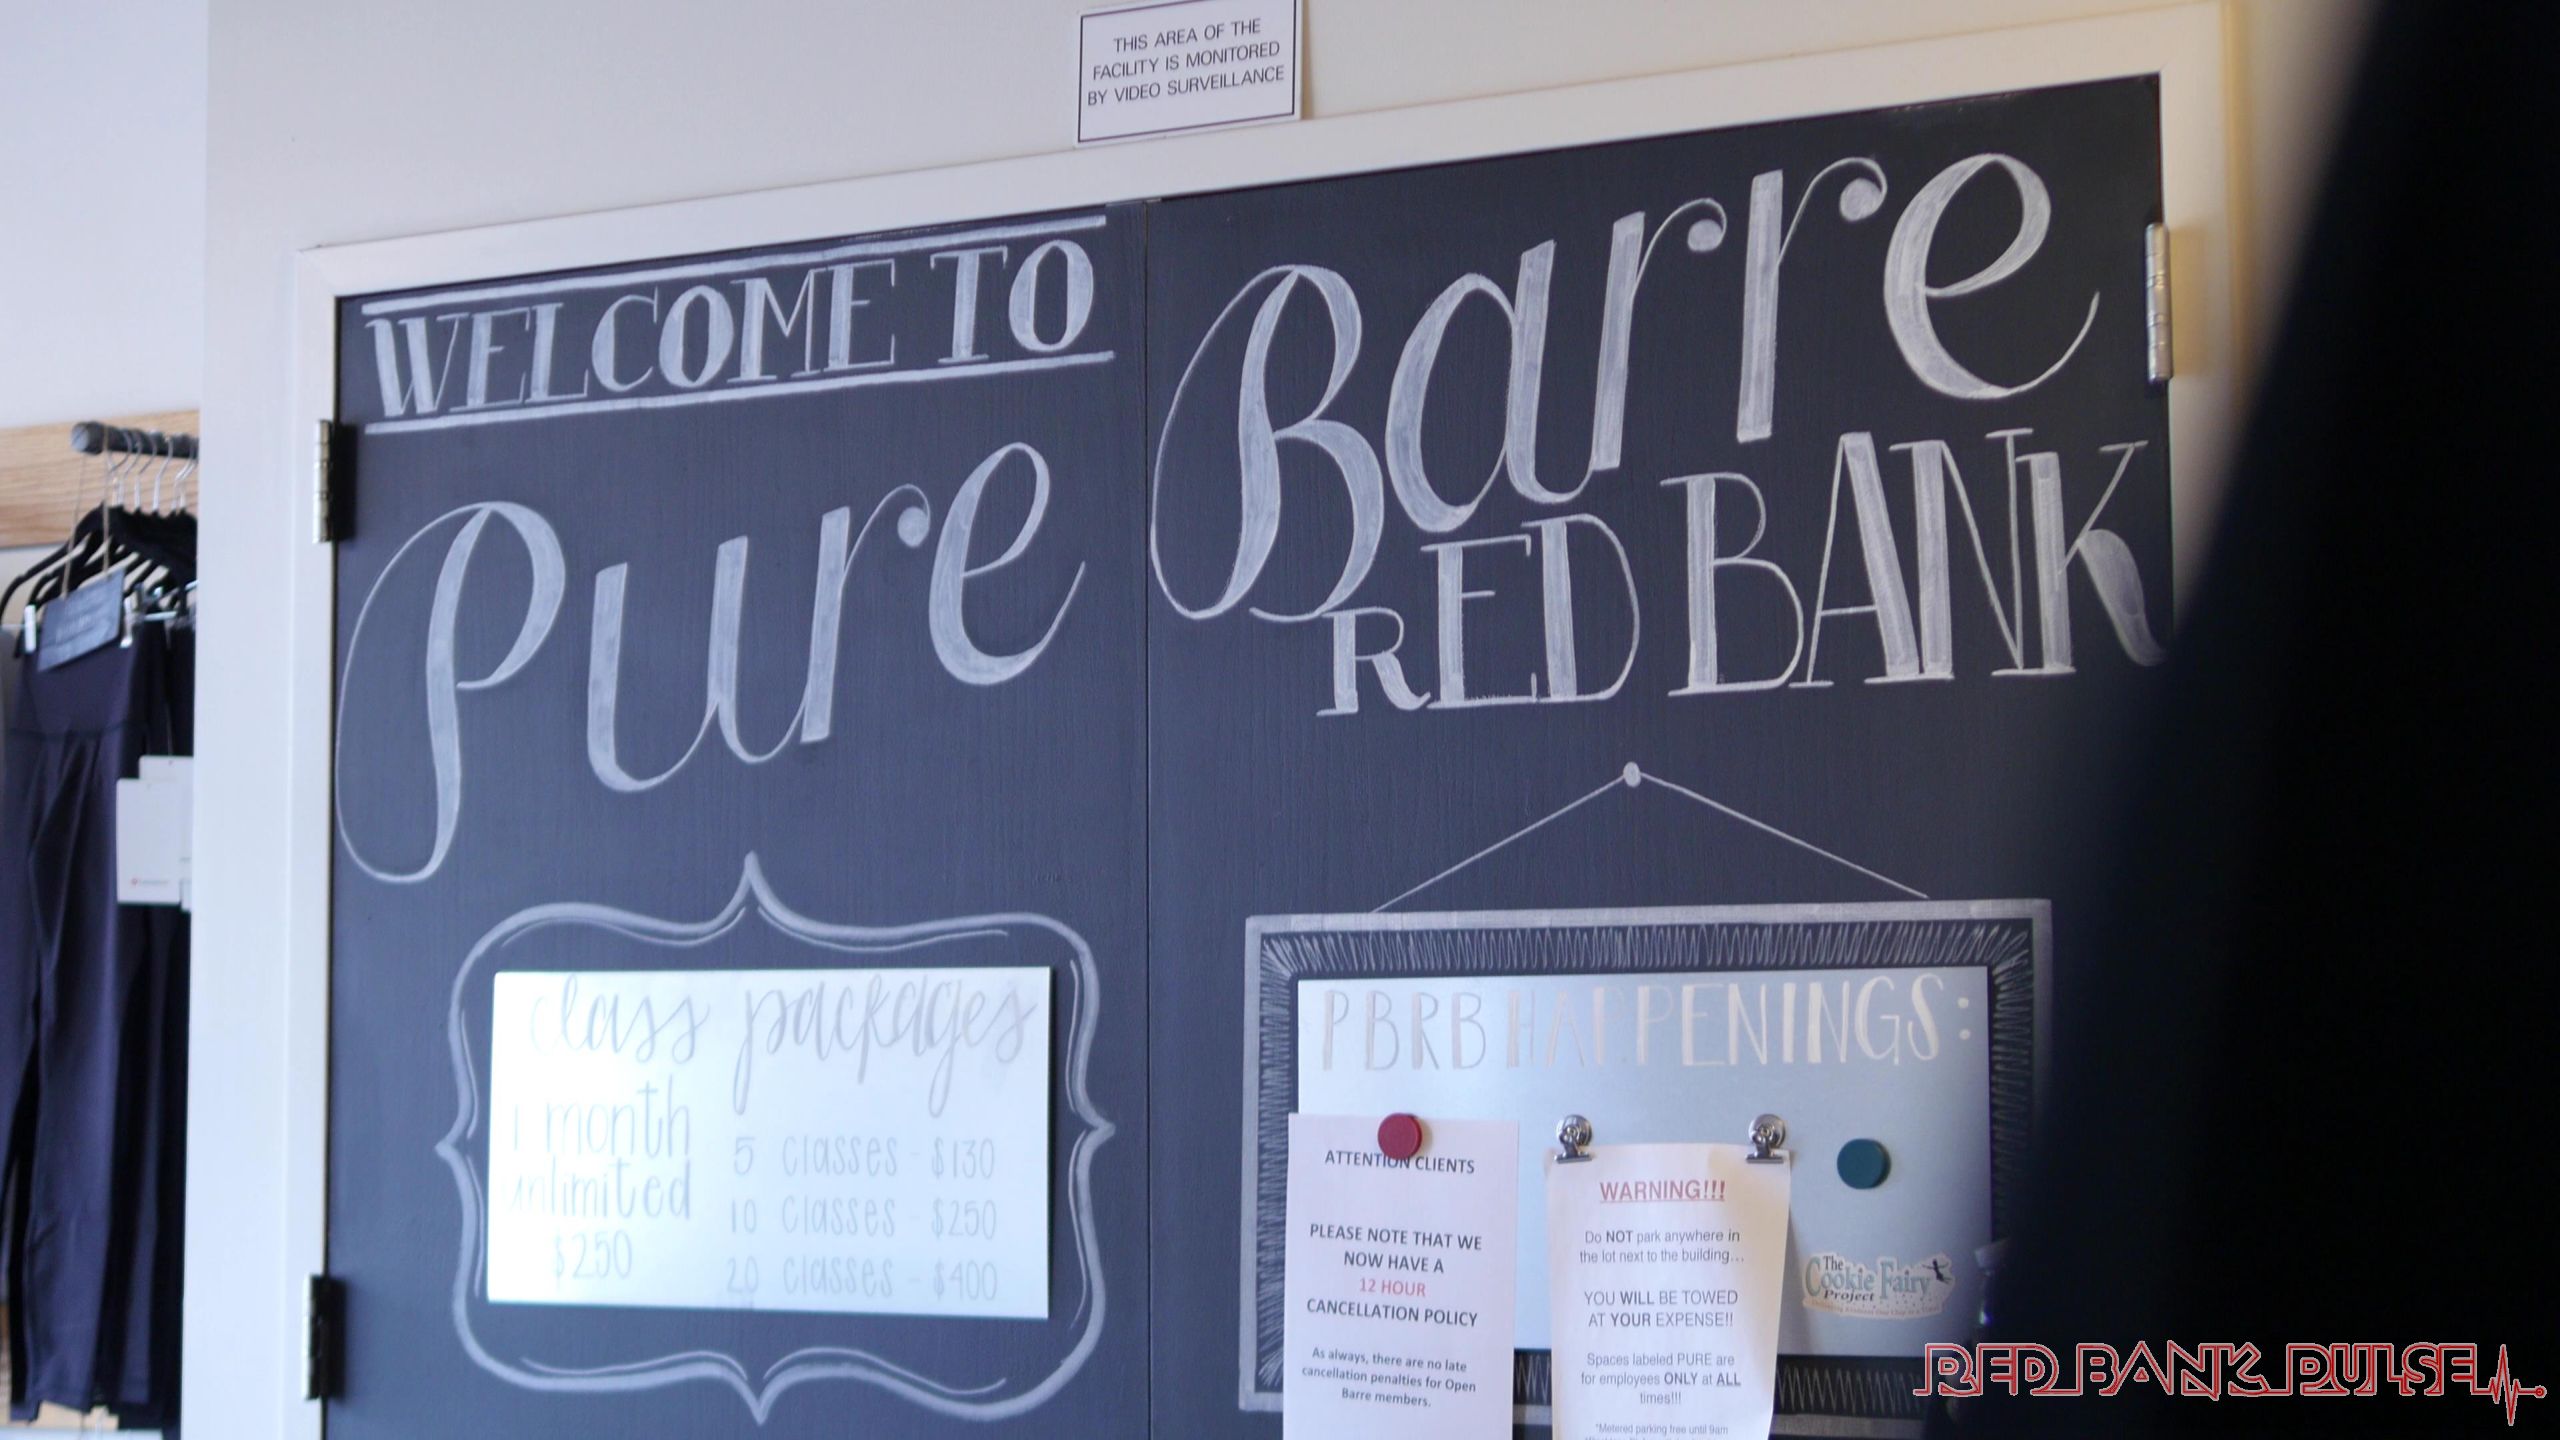 THIS AREA OF THE
FACILITY IS MONITORED
BY VIDEO SURVEILLANCE
WELCOME TO
Pure
Barre
RED BANK
class packages
1 month
unlimited
$250
5 classes - $130
10 classes - $250
20 classes - $400
PBRB HAPPENINGS:
ATTENTION CLIENTS
PLEASE NOTE THAT WE
NOW HAVE A
12 HOUR
CANCELLATION POLICY
As always, there are no late
cancellation penalties for Open
Barre members.
WARNING!!!
Do NOT park anywhere in
the lot next to the building...
YOU WILL BE TOWED
AT YOUR EXPENSE!!
Spaces labeled PURE are
for employees ONLY at ALL
times!!!
*Metered parking free until 9am
The
Cookie Fairy
Project
RED BANK PULSE